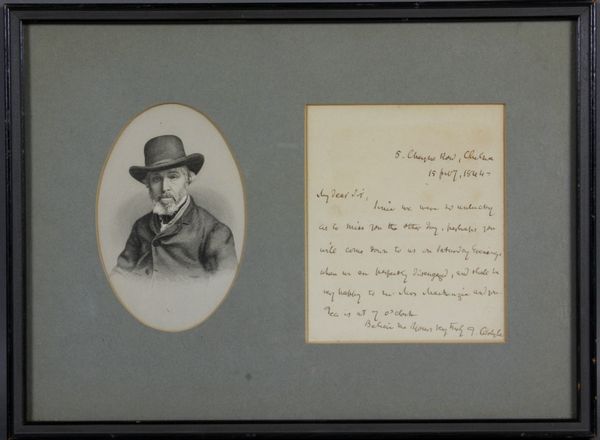 5. Cheyne Row, Chelsea
15 , 1844 -
My dear Sir,
Since we were so unlucky
as to miss you the other day, perhaps you
will come down to us on Saturday Evening,
when we are perfectly disengaged, and shall be
very happy to see Mrs Mackenzie and you
Tea is at 7 o'clock
Believe me Yours very truly T. Carlyle